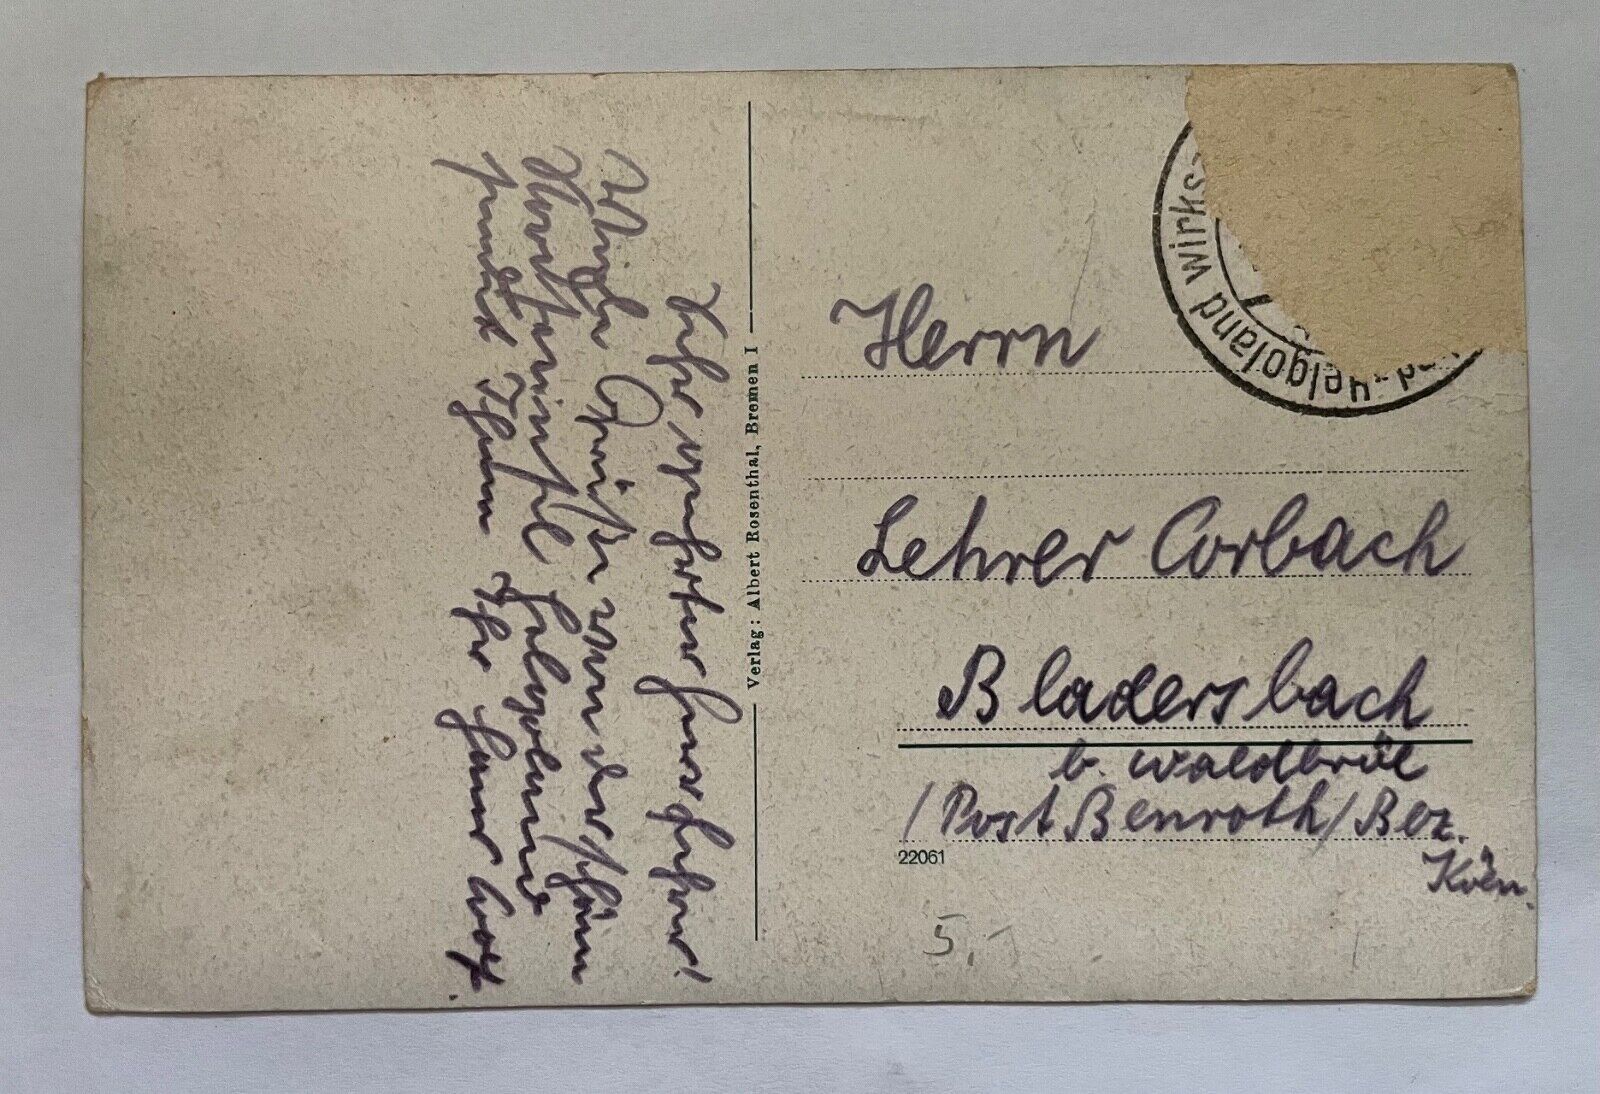 Sehr geehrter Herr Lehrer!
Viele Grüße von der schönen
Nordseeinsel Helgoland
sendet Ihnen Ihr
Verlag: Albert Rosenthal, Bremen I
Helgoland wirks
Herrn
Lehrer Corbach
Bladersbach
b. Waldbröl
/Post Benroth/Bez.
Köln.
22061
5.-